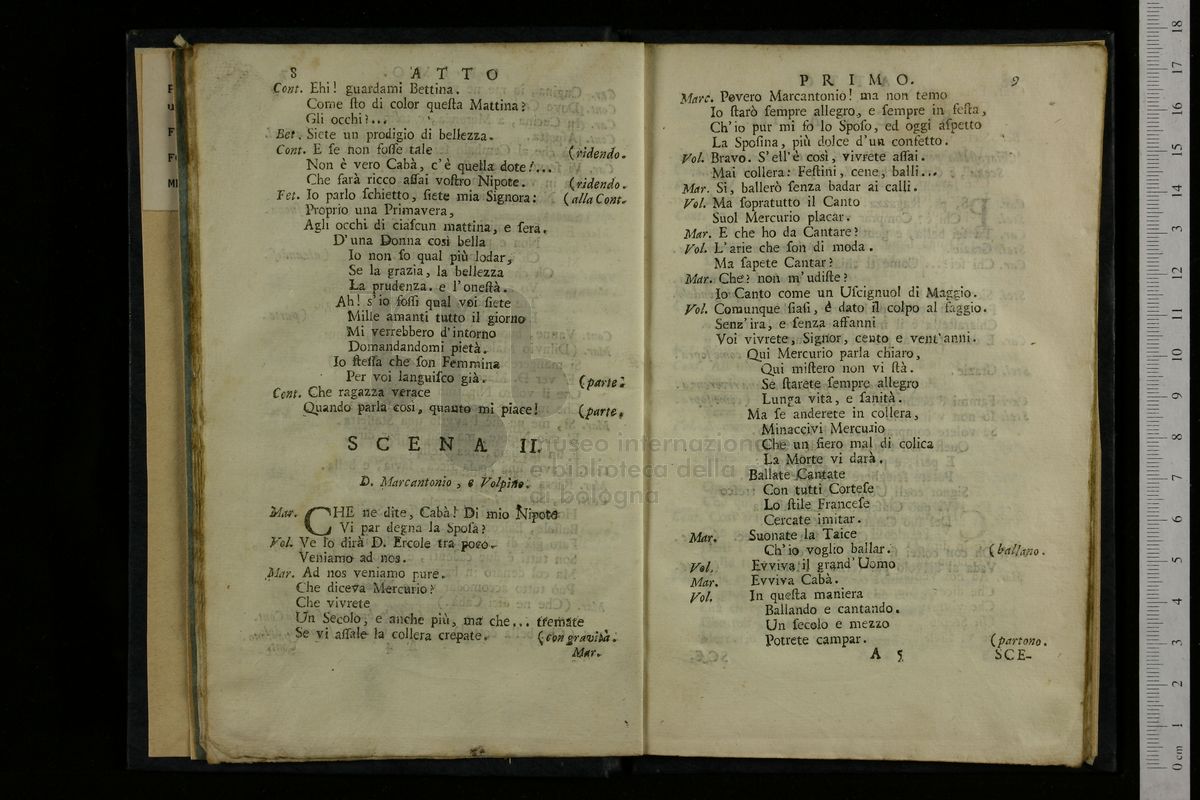 8 ATTO
Cont. Ehi! guardami Bettina.
Come ſto di color queſta Mattina?
Gli occhi?...
Bet. Siete un prodigio di bellezza.
Cont. E ſe non foſſe tale (ridendo.
Non è vero Cabà, c'è quella dote!...
Che farà ricco aſſai voſtro Nipote. (ridendo.
Fet. Io parlo ſchietto, ſiete mia Signora: (alla Cont.
Proprio una Primavera,
Agli occhi di ciaſcun mattina, e ſera.
D'una Donna così bella
Io non ſo qual più lodar,
Se la grazia, la bellezza
La prudenza. e l'oneſtà.
Ah! s'io foſſi qual voi ſiete
Mille amanti tutto il giorno
Mi verrebbero d'intorno
Domandandomi pietà.
Io ſteſſa che ſon Femmina
Per voi languiſco già. (parte.
Cont. Che ragazza verace
Quando parla così, quanto mi piace! (parte.
SCENA II.
D. Marcantonio, e Volpino.
Mar. CHE ne dite, Cabà! Di mio Nipote
Vi par degna la Spoſa?
Vol. Ve lo dirà D. Ercole tra poco.
Veniamo ad nos.
Mar. Ad nos veniamo pure.
Che diceva Mercurio?
Che vivrete
Un Secolo, e anche più, ma che... tremate
Se vi aſſale la collera crepate. (con gravità.
Mar.
PRIMO. 9
Marc. Povero Marcantonio! ma non temo
Io ſtarò ſempre allegro, e ſempre in feſta,
Ch'io pur mi fo lo Spoſo, ed oggi aſpetto
La Spoſina, più dolce d'un confetto.
Vol. Bravo. S'ell'è così, vivrete aſſai.
Mai collera: Feſtini, cene, balli...
Mar. Sì, ballerò ſenza badar ai calli.
Vol. Ma ſopratutto il Canto
Suol Mercurio placar.
Mar. E che ho da Cantare?
Vol. L'arie che ſon di moda.
Ma ſapete Cantar?
Mar. Che? non m'udiſte?
Io Canto come un Uſcignuol di Maggio.
Vol. Comunque ſiaſi, è dato il colpo al ſaggio.
Senz'ira, e ſenza affanni
Voi vivrete, Signor, cento e vent'anni.
Qui Mercurio parla chiaro,
Qui miſtero non vi ſtà.
Se ſtarete ſempre allegro
Lunga vita, e ſanità.
Ma ſe anderete in collera,
Minaccivi Mercurio
Che un fiero mal di colica
La Morte vi darà.
Ballate Cantate
Con tutti Corteſe
Lo ſtile Franceſe
Cercate imitar.
Mar. Suonate la Taice
Ch'io voglio ballar. (ballano.
Vol. Evviva il grand'Uomo
Mar. Evviva Cabà.
Vol. In queſta maniera
Ballando e cantando.
Un ſecolo e mezzo
Potrete campar. (partono.
A 5 SCE-
museo internazionale
e biblioteca della
di bologna